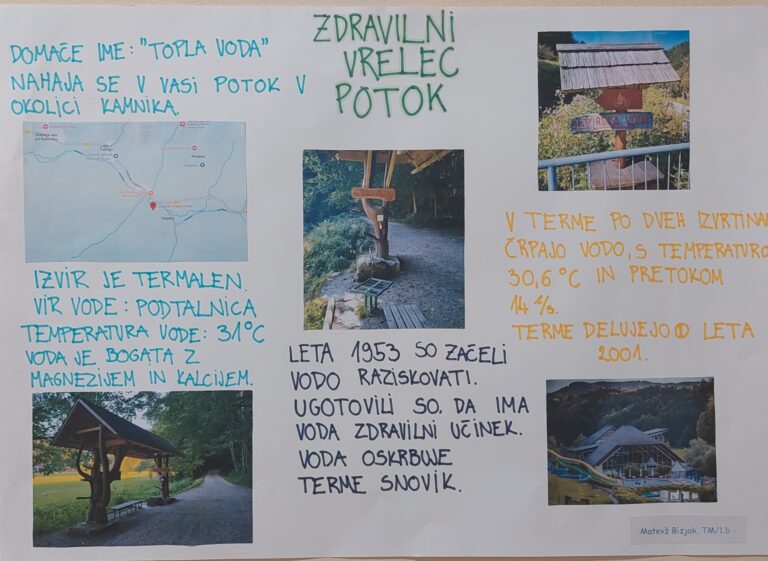 ZDRAVILNI
VRELEC
POTOK
DOMAČE IME: "TOPLA VODA"
NAHAJA SE V VASI POTOK V
OKOLICI KAMNIKA.
IZVIR JE TERMALEN.
VIR VODE: PODTALNICA
TEMPERATURA VODE: 31°C
VODA JE BOGATA Z
MAGNEZIJEM IN KALCIJEM.
LETA 1953 SO ZAČELI
VODO RAZISKOVATI.
UGOTOVILI SO, DA IMA
VODA ZDRAVILNI UČINEK.
VODA OSKRBUJE
TERME SNOVIK.
V TERME PO DVEH IZVRTINAH
ČRPAJO VODO, S TEMPERATURO
30,6°C IN PRETOKOM
14 l/s.
TERME DELUJEJO OD LETA
2001.
Matevž Bizjak, TM/1.b